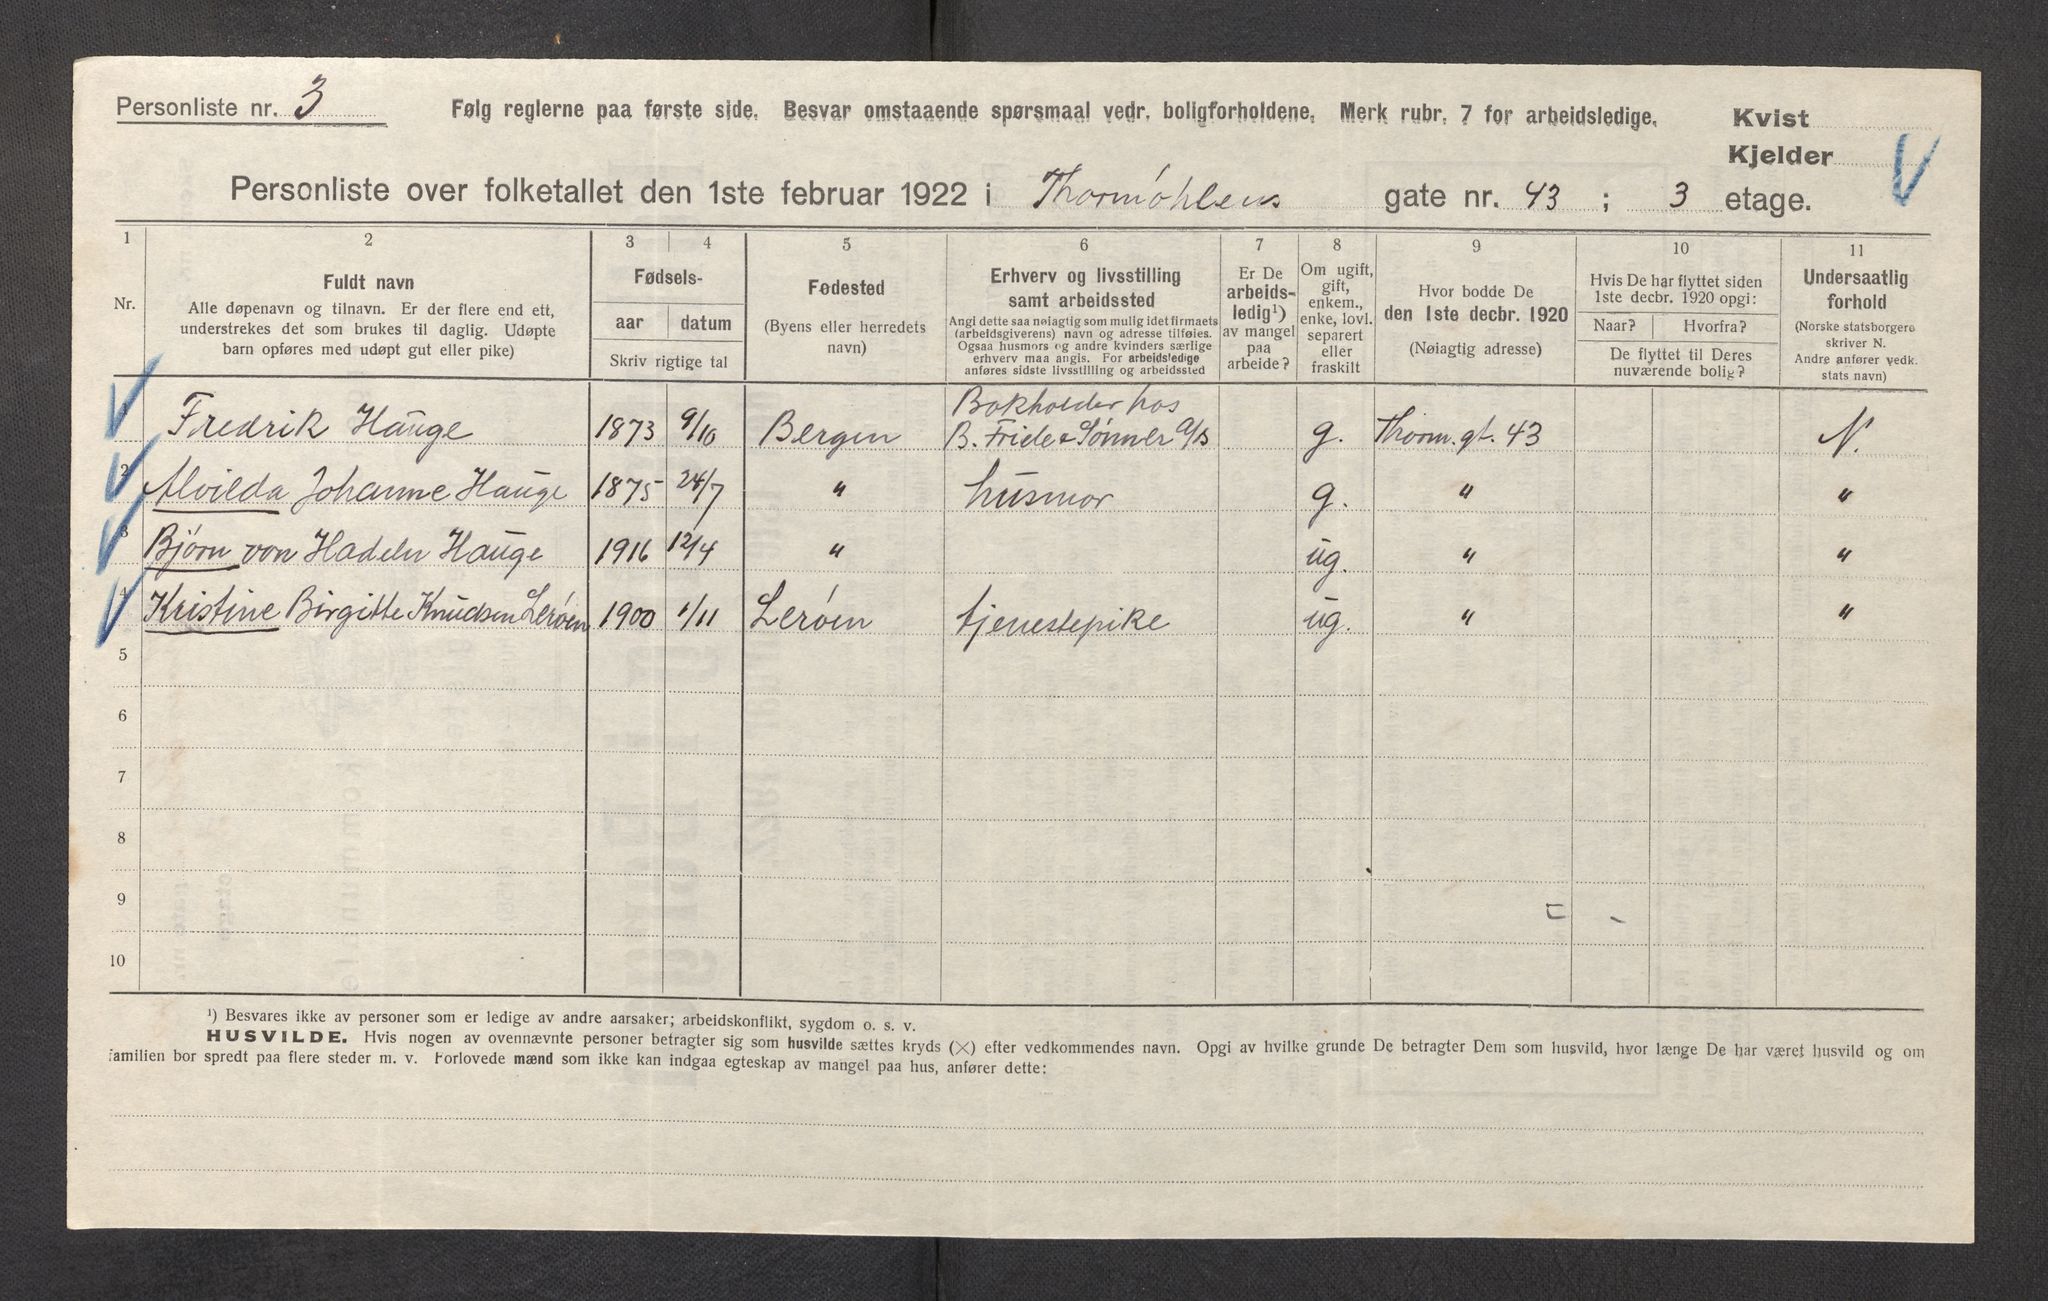 Personliste nr. 3 Følg reglerne paa første side. Besvar omstaaende spørsmaal vedr. boligforholdene. Merk rubr. 7 for arbeidsledige. Kvist
Kjelder
Personliste over folketallet den 1ste februar 1922 i Thormøhlens gate nr. 43 ; 3 etage.
1 2 3 4 5 6 7 8 9 10 11
Nr.
Fuldt navn
Alle døpenavn og tilnavn. Er der flere end ett,
understrekes det som brukes til daglig. Udøpte
barn opføres med udøpt gut eller pike)
Fødsels-
aar datum
Skriv rigtige tal
Fødested
(Byens eller herredets
navn)
Erhverv og livsstilling
samt arbeidssted
Angi dette saa nøiagtig som mulig idet firmaets
(arbeidsgiverens) navn og adresse tilføies.
Ogsaa husmors og andre kvinders særlige
erhverv maa angis. For arbeidsledige
anføres sidste livsstilling og arbeidssted
Er De
arbeids-
ledig¹)
av mangel
paa
arbeide?
Om ugift,
gift,
enkem.,
enke, lovl.
separert
eller
fraskilt
Hvor bodde De
den 1ste decbr. 1920
(Nøiagtig adresse)
Hvis De har flyttet siden
1ste decbr. 1920 opgi:
Naar? Hvorfra?
De flyttet til Deres
nuværende bolig?
Undersaatlig
forhold
(Norske statsborgere
skriver N.
Andre anfører vedk.
stats navn)
Fredrik Hauge 1873 9/10 Bergen Bokholder hos
B. Friele & Sønner A/S g. Thorm. gt. 43 N.
2 Alvilda Johanne Hauge 1875 24/7 " husmor g. " "
3 Bjørn von Hadeln Hauge 1916 12/4 " ug. " "
4 Kristine Birgitte Knudsen Lerøen 1900 1/11 Lerøen tjenestepike ug. " "
5
6
7
8
9
10
¹) Besvares ikke av personer som er ledige av andre aarsaker; arbeidskonflikt, sygdom o. s. v.
HUSVILDE. Hvis nogen av ovennævnte personer betragter sig som husvilde sættes kryds (×) efter vedkommendes navn. Opgi av hvilke grunde De betragter Dem som husvild, hvor længe De har været husvild og om
familien bor spredt paa flere steder m. v. Forlovede mænd som ikke kan indgaa egteskap av mangel paa hus, anfører dette: